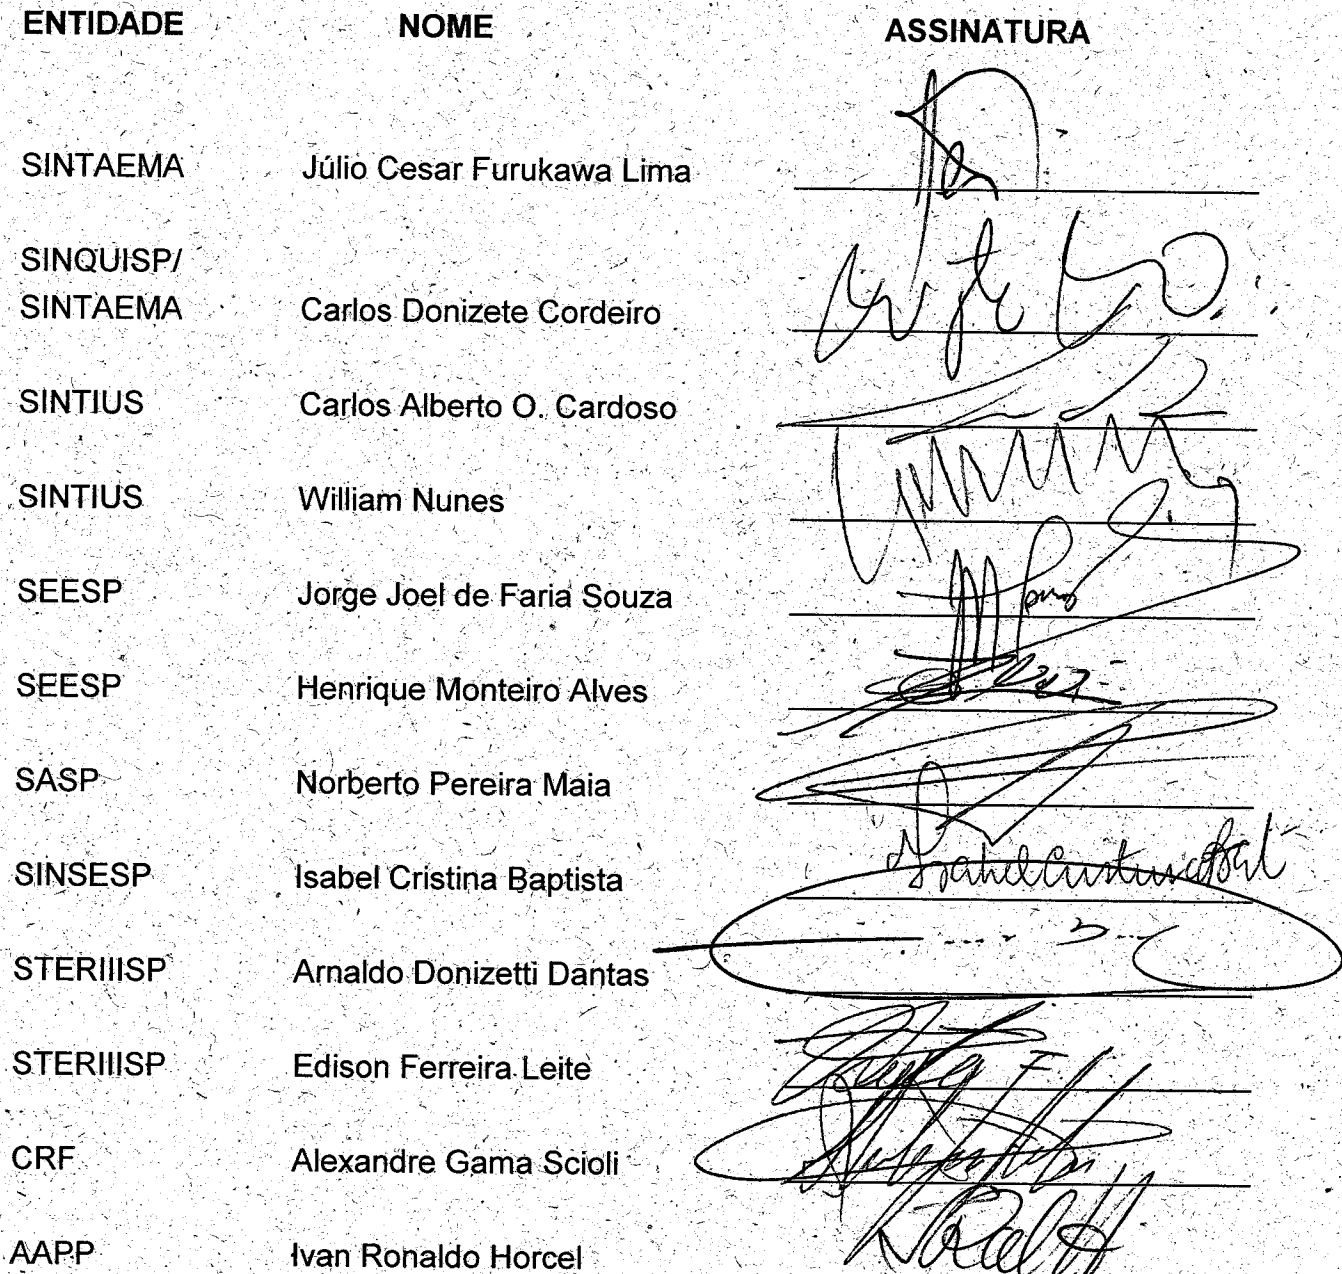 ENTIDADE NOME ASSINATURA
SINTAEMA Júlio Cesar Furukawa Lima
SINQUISP/
SINTAEMA Carlos Donizete Cordeiro
SINTIUS Carlos Alberto O. Cardoso
SINTIUS William Nunes
SEESP Jorge Joel de Faria Souza
SEESP Henrique Monteiro Alves
SASP Norberto Pereira Maia
SINSESP Isabel Cristina Baptista
STERIIISP Arnaldo Donizetti Dantas
STERIIISP Edison Ferreira Leite
CRF Alexandre Gama Scioli
AAPP Ivan Ronaldo Horcel